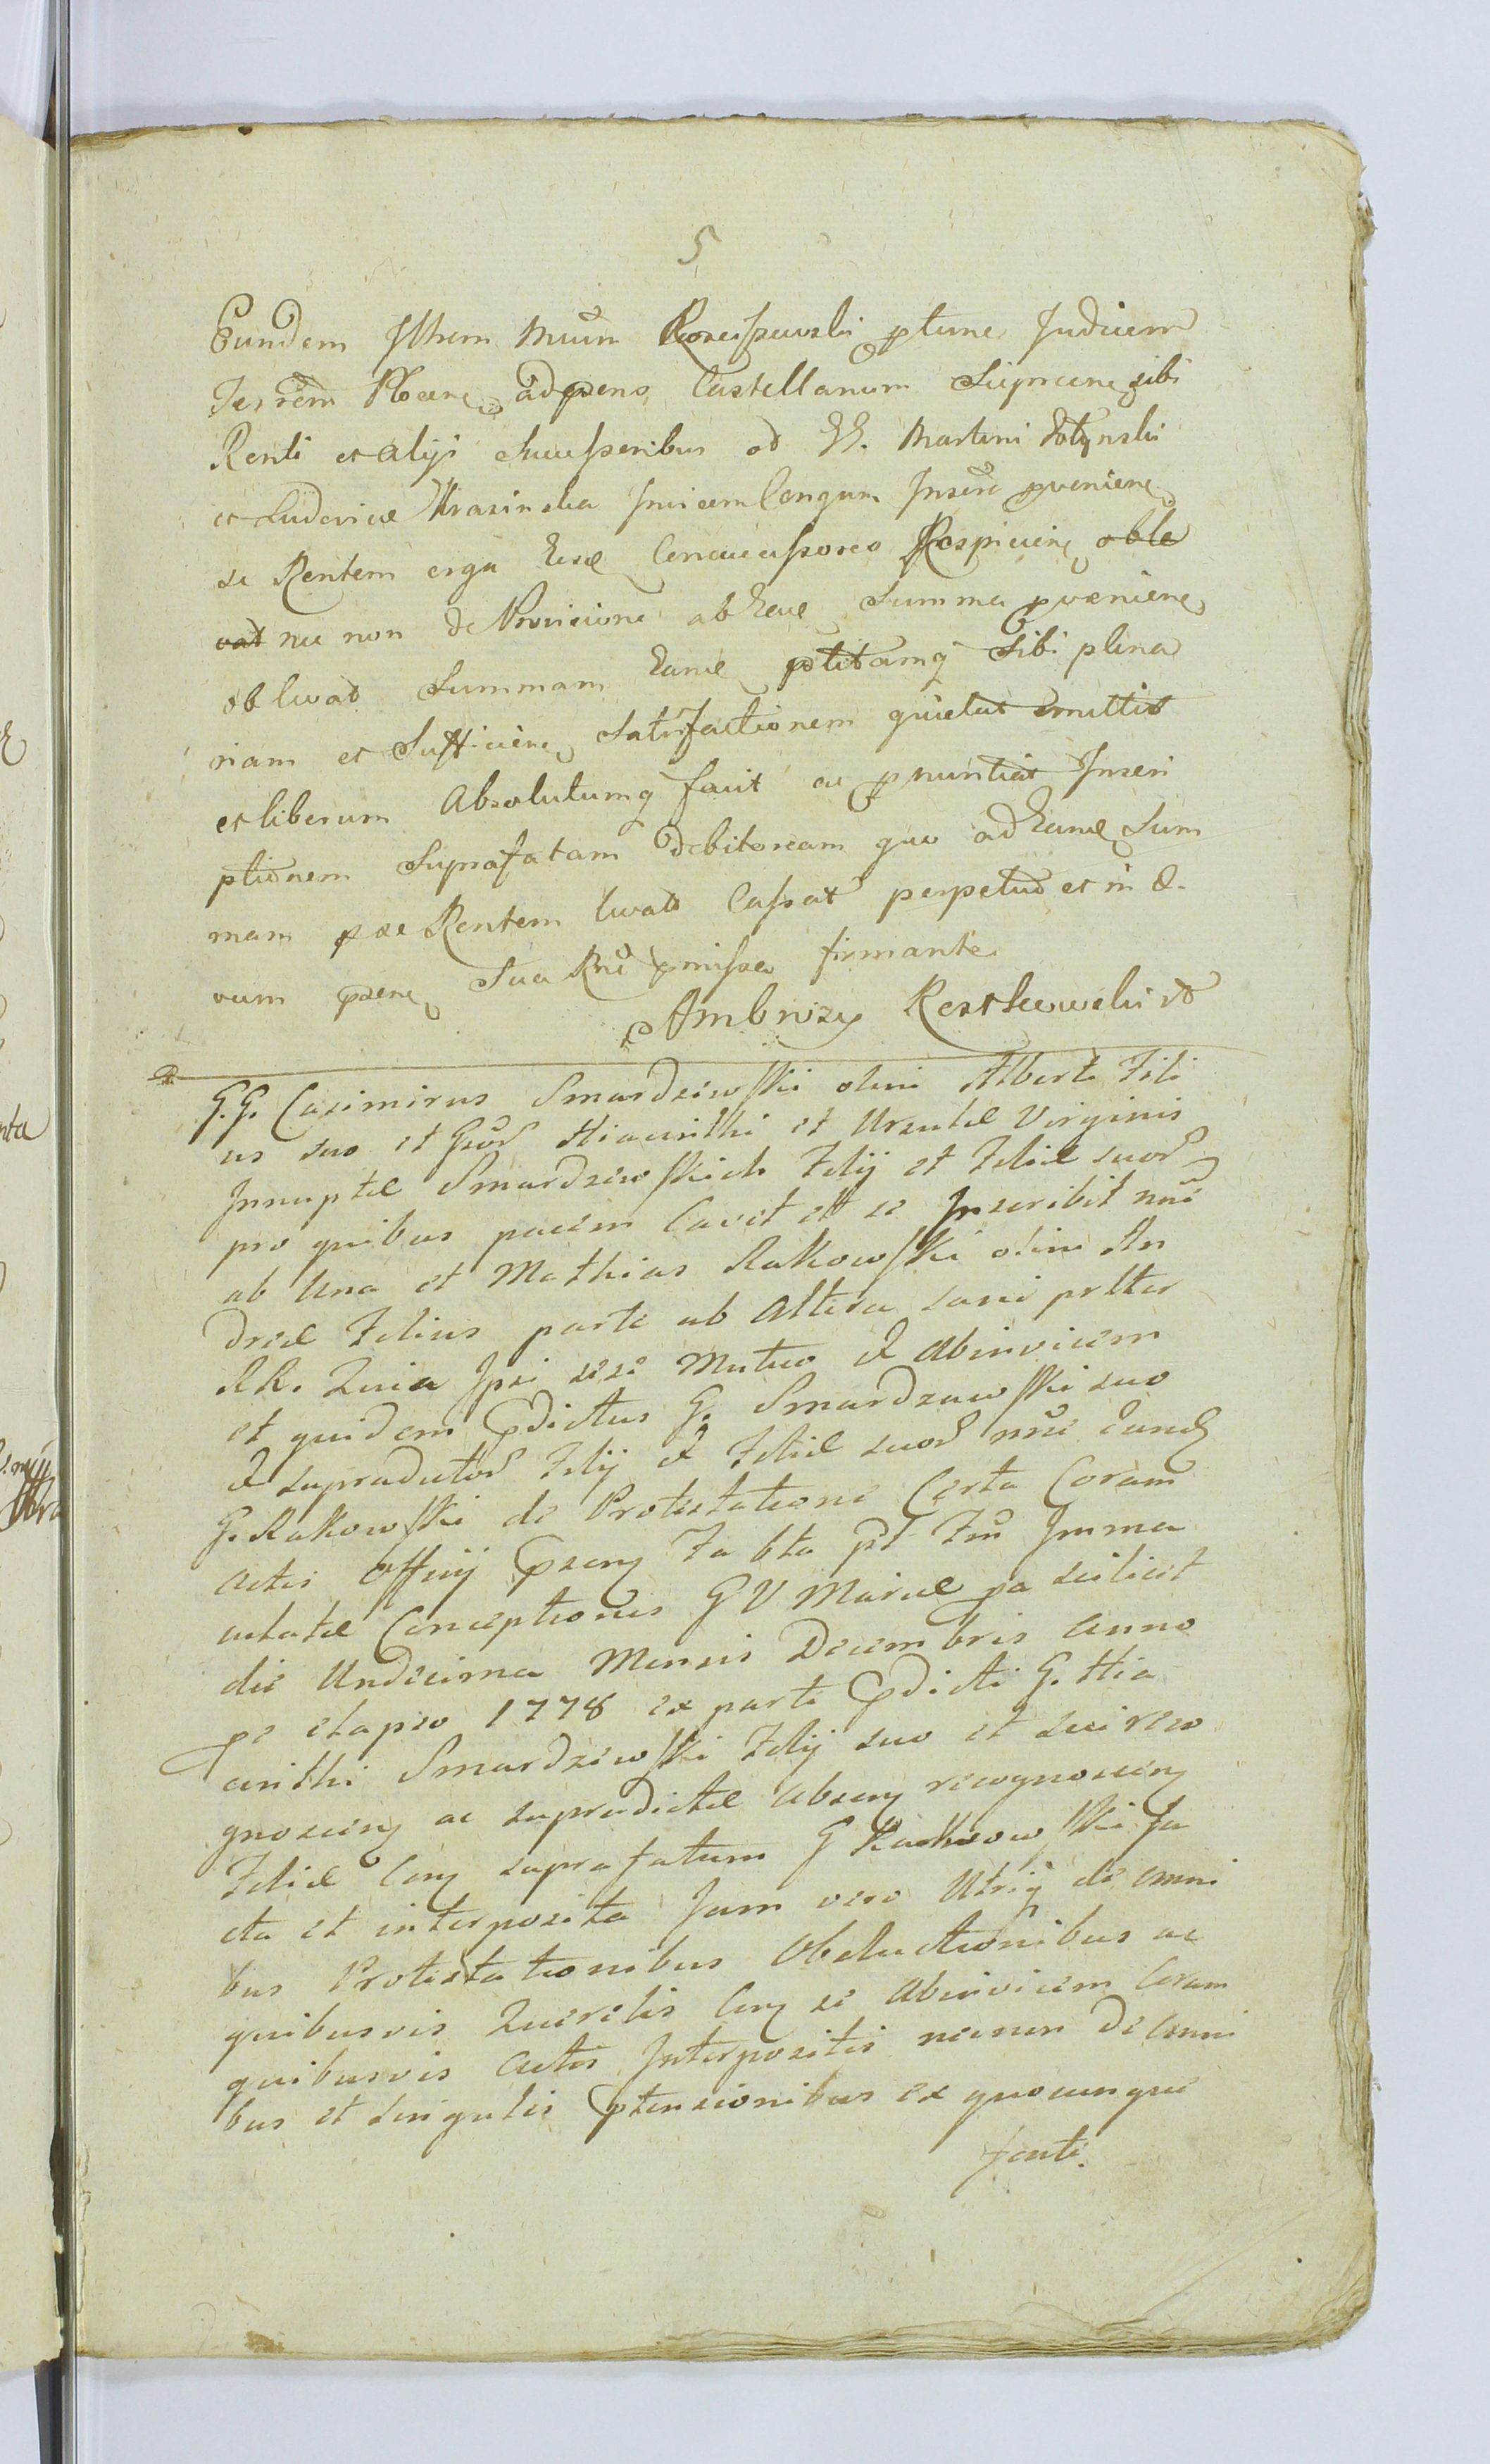 5
Eundem Illrem Mcum Roscissewski ptunc Judicem
Terrem Plocen, adpsens Castellanum Siepncen, sibi
Rcnti et alijs Successoribus ad GG. Martini Kotynski
et Ludovicæ Krasinska Invicem Congum Inscre pvenien,
se Rcntem erga Eosd, Concaessores Respicien, oble
vat nec non de Provisione ab Eade, Summa pvenien,
oblevat Summam Eand, solitamq sibi plena
riam et Sufficien, Satisfactionem quietat emittit
et liberum Absolutumq facit ac pnuntiat Inscri
ptionem Suprafatam debitoream quo ad Eand, Sum
mam p se Rcntem levat Cassat perpetuo et in æ-
vum psen, Sua Rne pmissa firmante
Ambrozy Kostkowski
G.G. Casimirus Smardzewski olim Alberti Fili
us suo et Gnor Hiacinthi et Ursulæ Virginis
Innuptæ Smardzewskich Filij et Filiæ suor
pro quibus pacem Cavet et se Inscribit nne
ab Una et Mathias Rakowski olim An
dreæ Filius parte ab Altera sani prtter
RR. Quia Ipsi sese Mutuo et Abinvicem
et quidem pdictus G. Smardzewski suo
et supradictor Filij et Filiæ suor nne Eund
G. Rakowski de Protestatione Certa Coram
Actis Officij psen, Fa bta pt Fm Imma
culatæ Conceptionis G V Mariæ pa scilicet
die Undecima Mensis Decembris Anno
pe elapso 1778 ex parte pdicti G. Hia
cinthi Smardzewski Filij suo et sui reco
gnoscen, ac supradictæ Absen, recognoscen,
Filiæ Con, suprafatum G Rakowski fa
cta et interposita Jam vero Utriq de omni
bus Protestationibus Obductionibus ac
quibusvis Querelis Con, se Abinvicem Coram
quibusvis Actis Interpositis necnon de Omni
bus et singulis ptensionibus ex quocunque
fonte.